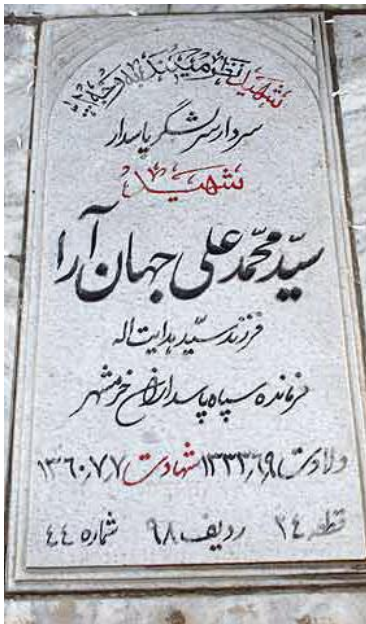 شهید نظر میکند به وجه الله
سردار سرلشگر پاسدار
شهید
سید محمد علی جهان آرا
فرزند سید هدایت اله
فرمانده سپاه پاسداران خرمشهر
ولادت ۱۳۳۳٫۶٫۹ شهادت ۱۳۶۰٫۷٫۷
قطعه ۲٤ ردیف ۹۸ شماره ٤٤